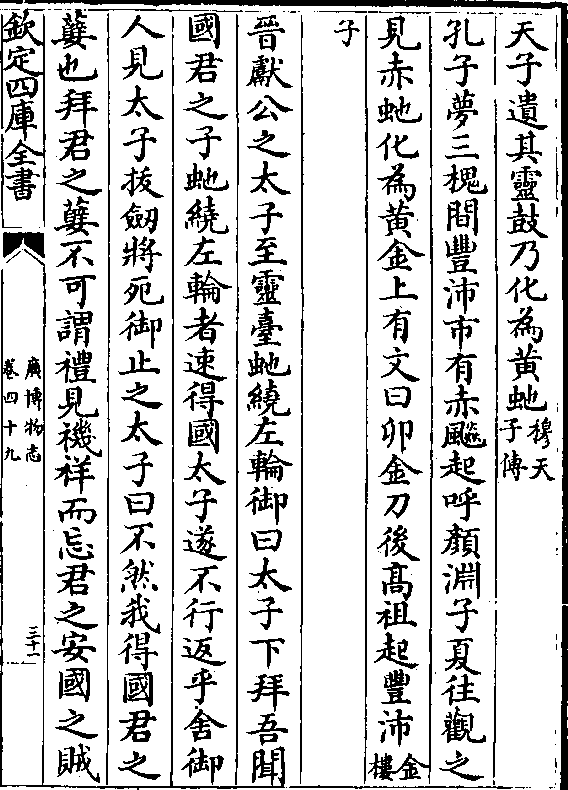 天子遺其靈鼓乃化為黃虵穆天子傳
孔子夢三槐間豐沛市有赤飊起呼顏淵子夏往觀之
見赤虵化為黃金上有文曰卯金刀後髙祖起豐沛金樓
子
晉獻公之太子至靈臺虵繞左輪御曰太子下拜吾聞
國君之子虵繞左輪者速得國太子遂不行返乎舍御
人見太子拔劔將死御止之太子曰不然我得國君之
孽也拜君之孽不可謂禮見禨祥而忘君之安國之賊
欽定四庫全書
廣博物志
卷四十九
三十一